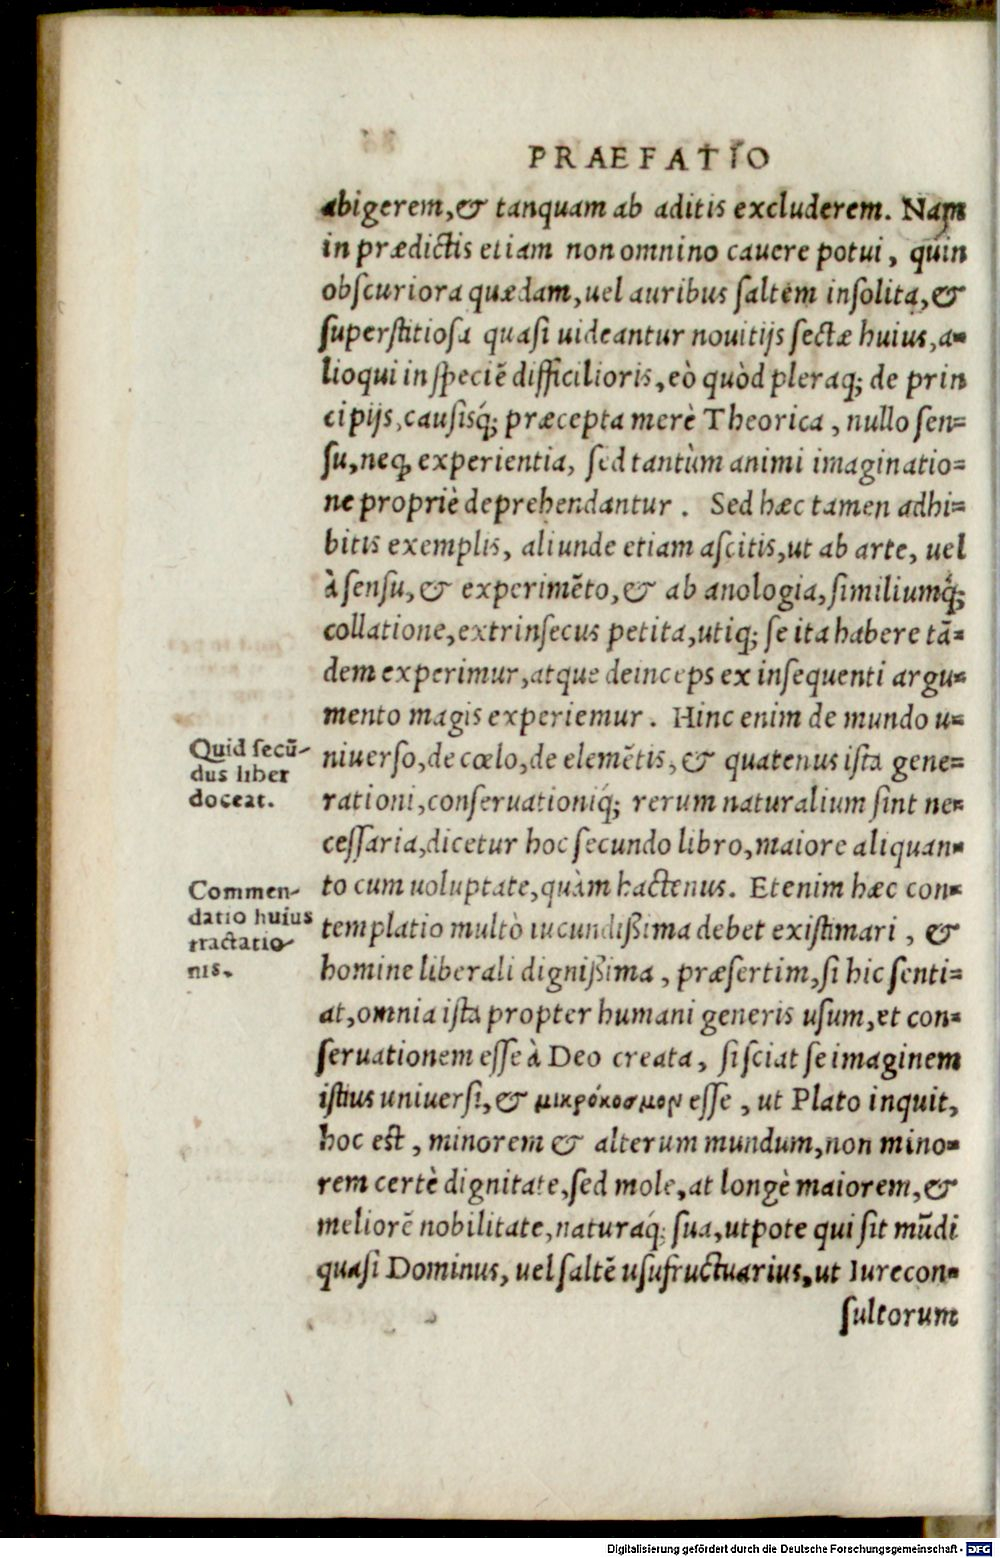 PRAEFATIO
abigerem, & tanquam ab aditis excluderem. Nam
in prædictis etiam non omnino cauere potui, quin
obſcuriora quædam, uel auribus ſaltem inſolita, &
ſuperſtitioſa quaſi uideantur nouitijs ſectæ huius, a=
lioqui in ſpeciē difficilioris, eò quòd pleraq; de prin
cipijs, cauſisq́; præcepta merè Theorica, nullo ſen=
ſu, neq; experientia, ſed tantùm animi imaginatio=
ne propriè deprehendantur. Sed hæc tamen adhi=
bitis exemplis, aliunde etiam aſcitis, ut ab arte, uel
à ſenſu, & experimēto, & ab anologia, ſimiliumq́;
collatione, extrinſecus petita, utiq; ſe ita habere tā=
dem experimur, atque deinceps ex inſequenti argu=
mento magis experiemur. Hinc enim de mundo u=
Quid ſecū-
dus liber
doceat.
niuerſo, de cœlo, de elemētis, & quatenus iſta gene=
rationi, conſeruationiq́; rerum naturalium ſint ne=
ceſſaria, dicetur hoc ſecundo libro, maiore aliquan=
Commen-
datio huius
tractatio-
nis.
to cum uoluptate, quàm hactenus. Etenim hæc con=
templatio multò iucundißima debet exiſtimari, &
homine liberali dignißima, præſertim, ſi hic ſenti=
at, omnia iſta propter humani generis uſum, et con=
ſeruationem eſſe à Deo creata, ſi ſciat ſe imaginem
iſtius uniuerſi, & μικρόκοσμον eſſe, ut Plato inquit,
hoc eſt, minorem & alterum mundum, non mino=
rem certè dignitate, ſed mole, at longè maiorem, &
meliorē nobilitate, naturaq́; ſua, utpote qui ſit mūdi
quaſi Dominus, uel ſaltē uſufructuarius, ut Iurecon=
ſultorum
Digitalisierung gefördert durch die Deutsche Forschungsgemeinschaft - DFG